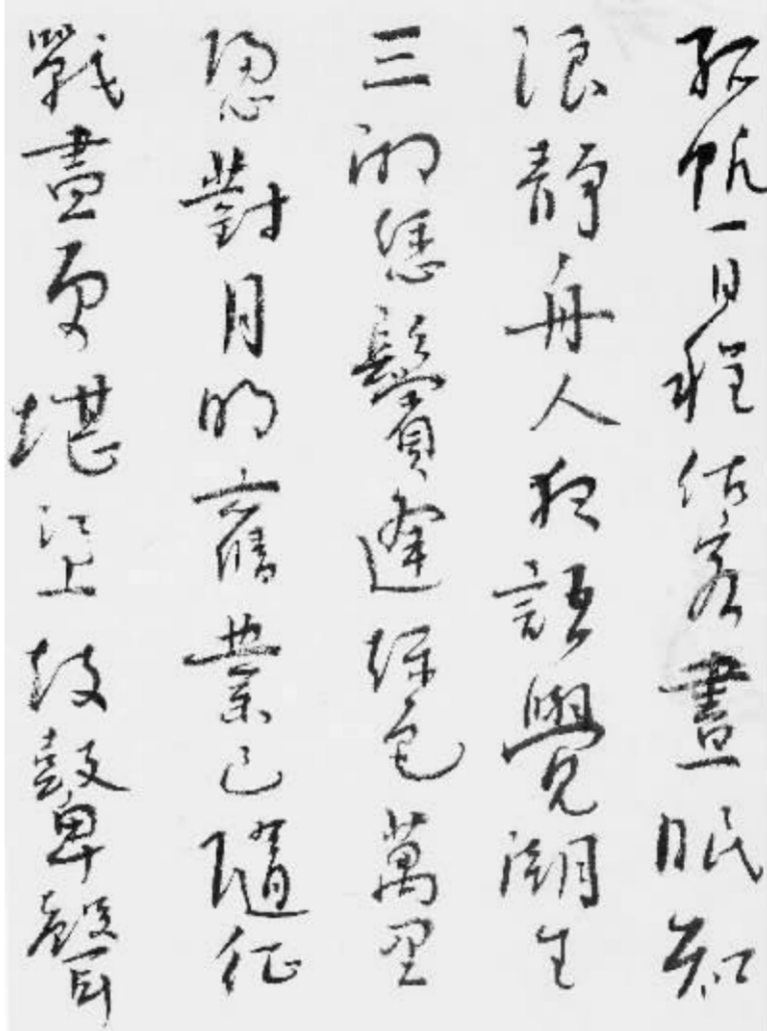 孤帆一日程估客晝眠知
浪靜舟人夜語覺潮生
三湘愁鬢逢秋色萬里
歸心對月明舊業已隨征
戰盡更堪江上鼓鼙聲